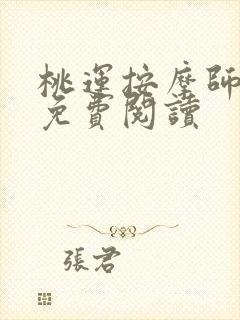 桃運按摩師
免費閱讀
張君